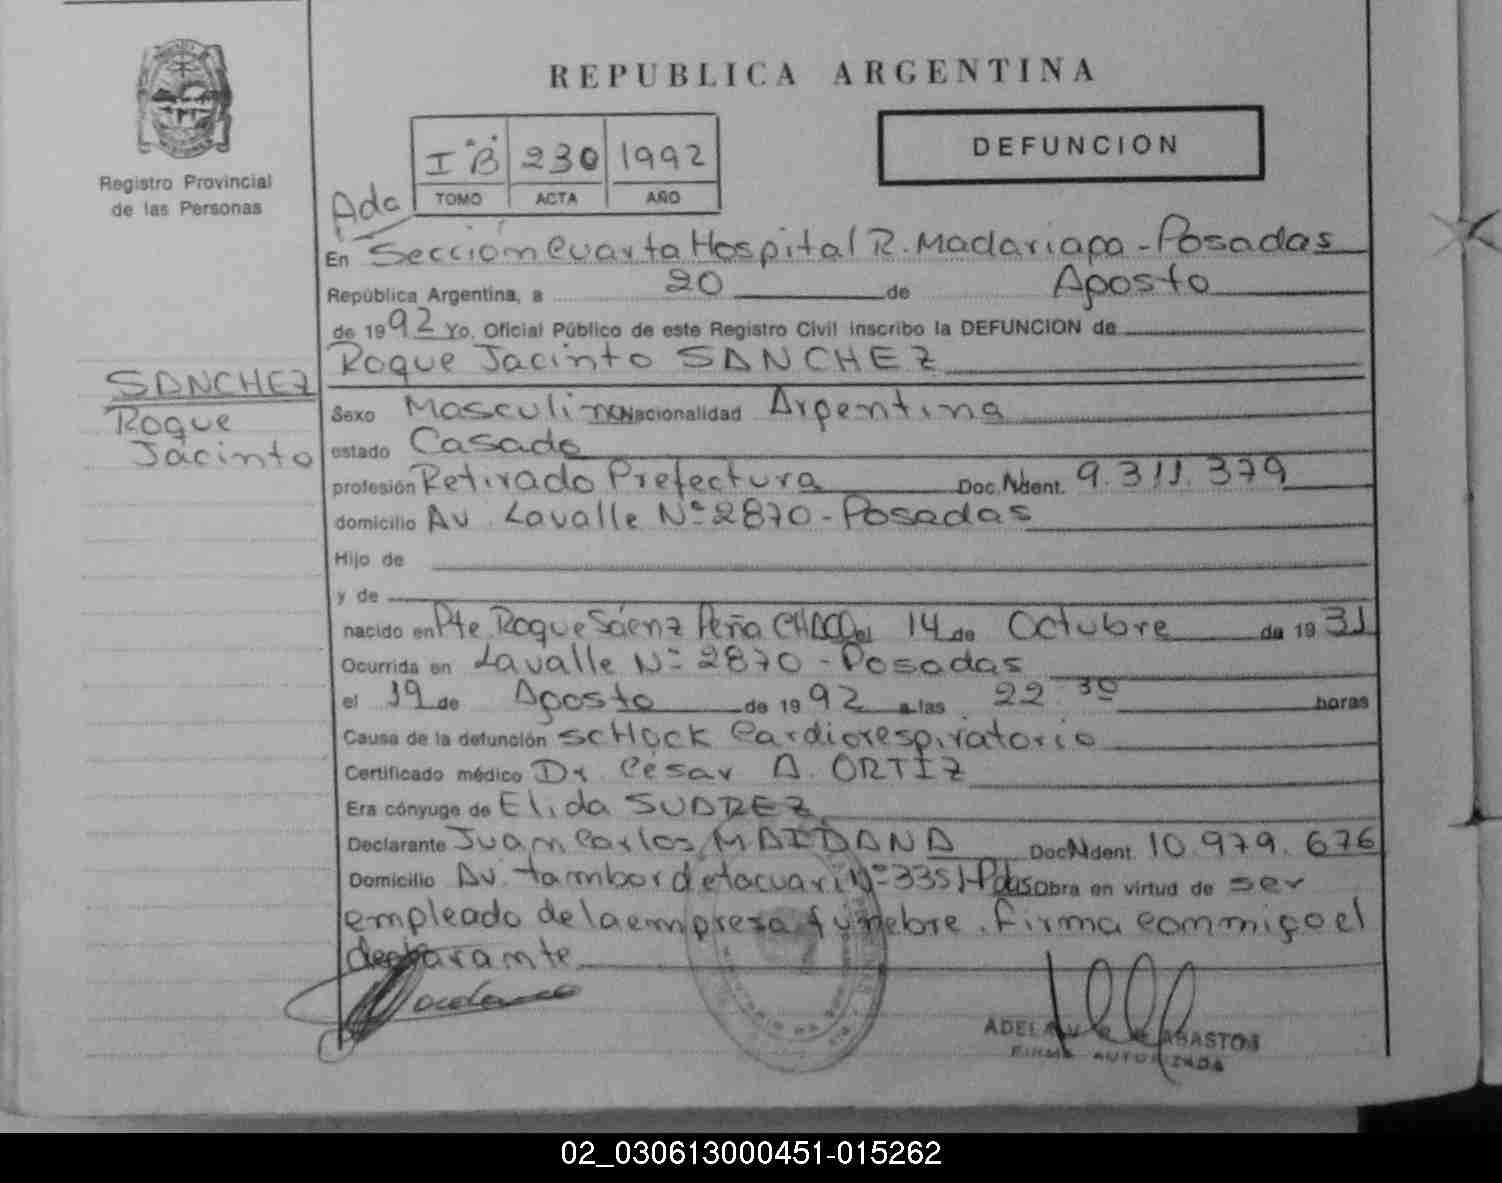 REPUBLICA ARGENTINA
Registro Provincial
de las Personas
I "B" 230 1992
TOMO ACTA AÑO
DEFUNCION
Ada
En Sección Cuarta Hospital R. Madariaga - Posadas
República Argentina, a 20 de Agosto
de 1992 Yo, Oficial Público de este Registro Civil inscribo la DEFUNCION de
Roque Jacinto SANCHEZ
SANCHEZ
Roque
Jacinto
Sexo Masculino Nacionalidad Argentina
estado Casado
profesión Retirado Prefectura Doc. Ident. 9.311.379
domicilio Av. Lavalle Nº 2870 - Posadas
Hijo de
y de
nacido en Pte. Roque Sáenz Peña CHACO el 14 de Octubre de 1931
Ocurrida en Lavalle Nº 2870 - Posadas
el 19 de Agosto de 1992 a las 22.30 horas
Causa de la defunción scHock Cardiorespiratorio
Certificado médico Dr. César A. ORTIZ
Era cónyuge de Elida SUAREZ
Declarante Juan Carlos MAIDANA Doc. Ident. 10.979.676
Domicilio Av. tambor de tacuari Nº 3351-Pdas Obra en virtud de ser
empleado de la empresa fúnebre. firma conmigo el
declarante
FIRMA AUTORIZADA
02_030613000451-015262